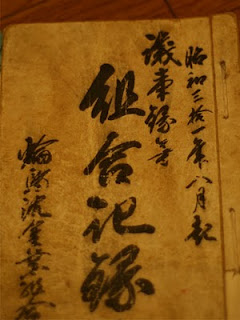 昭和三拾一年八月起
議事録等
組合記録
輪島漁業組合